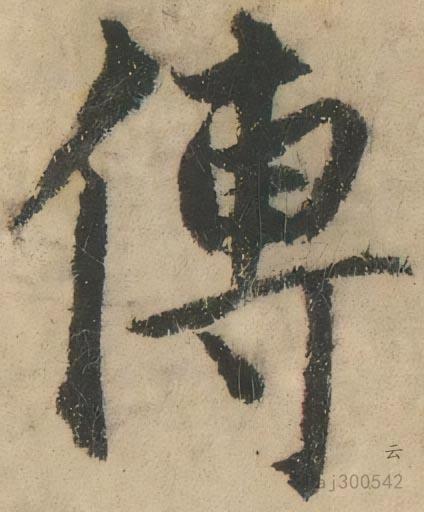 傳
云
aj300542